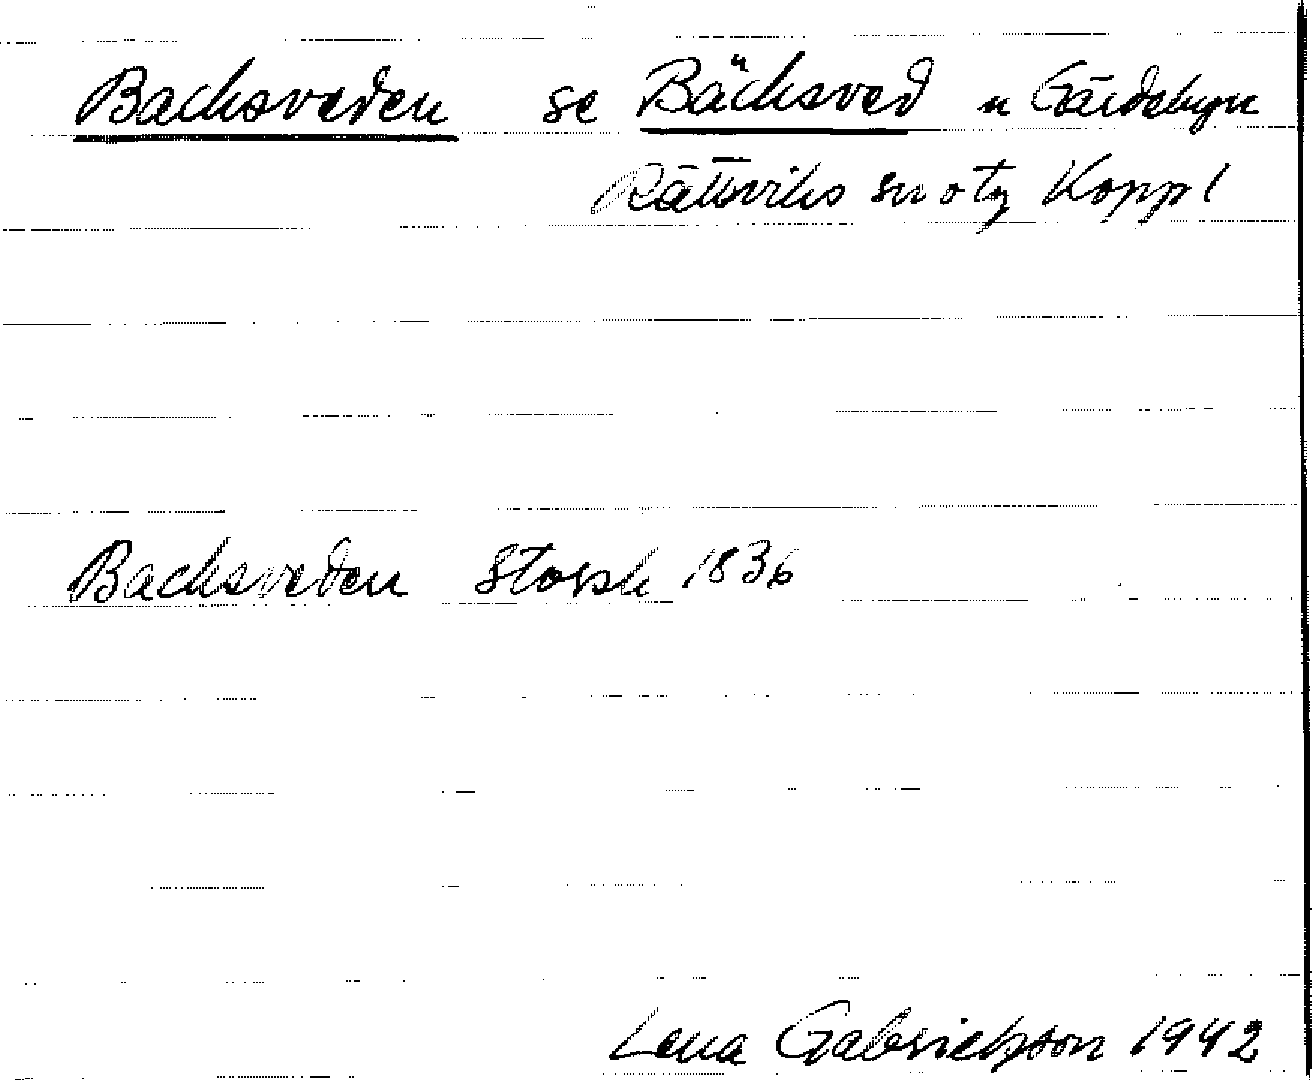 Backsveden se Bäcksved u Gärdebyn
Rättviks sn o tg Koppl
Backsveden Storsk 1836
Lena Gabrielsson 1942